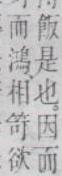 飯是也。因而
而鴻相笴欲